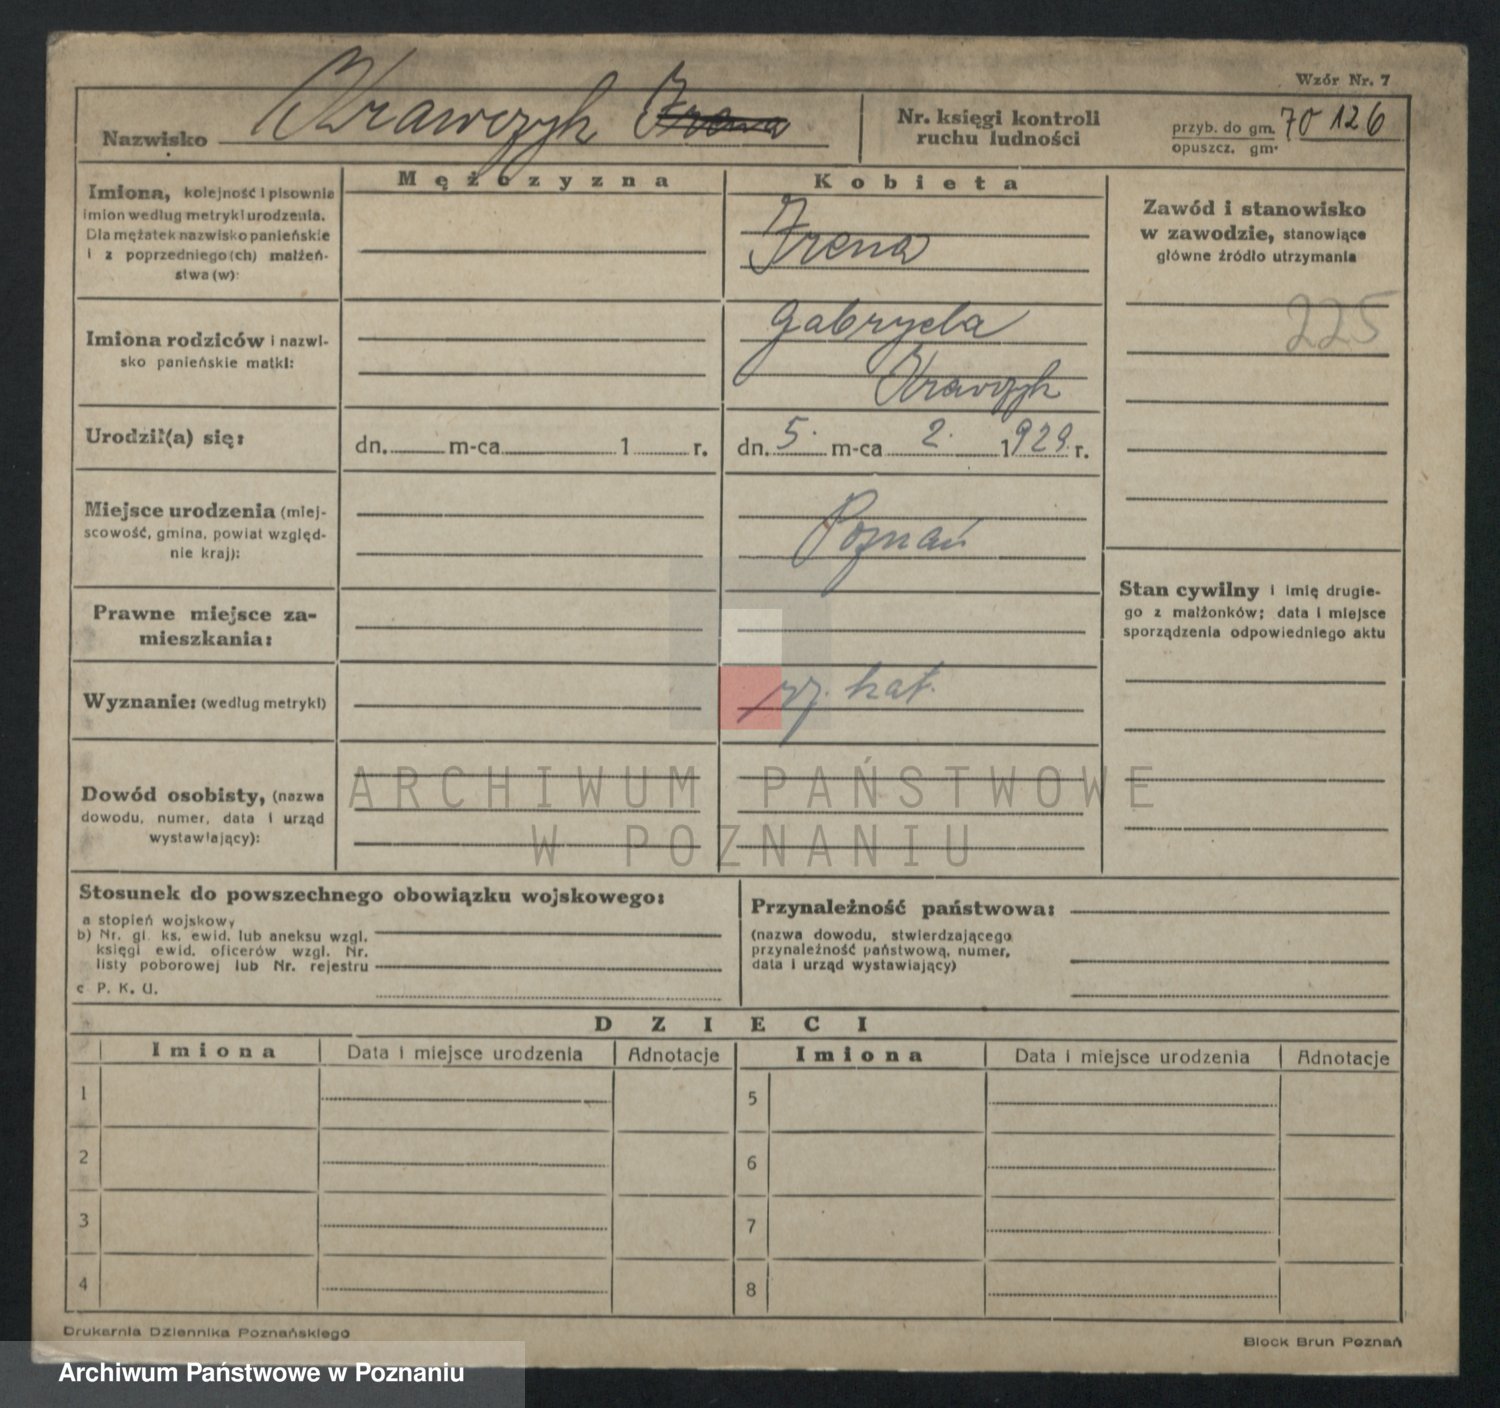 Wzór Nr. 7
Nazwisko Krawczyk Irena
Nr. księgi kontroli
ruchu ludności
przyb. do gm. 70 126
opuszcz. gm.
Mężczyzna
Kobieta
Imiona, kolejność i pisownia
imion według metryki urodzenia.
Dla mężatek nazwisko panieńskie
i z poprzedniego (ch) małżeń-
stwa (w):
Irena
Zawód i stanowisko
w zawodzie, stanowiące
główne źródło utrzymania
225
Imiona rodziców i nazwi-
sko panieńskie matki:
Gabryela
Krawczyk
Urodził(a) się:
dn. m-ca 1 r.
dn. 5. m-ca 2. 1929. r.
Miejsce urodzenia (miej-
scowość, gmina, powiat względ-
nie kraj):
Poznań
Stan cywilny i imię drugie-
go z małżonków; data i miejsce
sporządzenia odpowiedniego aktu
Prawne miejsce za-
mieszkania:
Wyznanie: (według metryki)
rz. kat.
Dowód osobisty, (nazwa
dowodu, numer, data i urząd
wystawiający):
ARCHIWUM PAŃSTWOWE
W POZNANIU
Stosunek do powszechnego obowiązku wojskowego:
a stopień wojskowy
b) Nr. gł. ks. ewid. lub aneksu wzgl.
księgi ewid. oficerów wzgl. Nr.
listy poborowej lub Nr. rejestru
c P. K. U.
Przynależność państwowa:
(nazwa dowodu, stwierdzającego
przynależność państwową, numer,
data i urząd wystawiający)
DZIECI
Imiona Data i miejsce urodzenia Adnotacje Imiona Data i miejsce urodzenia Adnotacje
1 5
2 6
3 7
4 8
Drukarnia Dziennika Poznańskiego
Block Brun Poznań
Archiwum Państwowe w Poznaniu